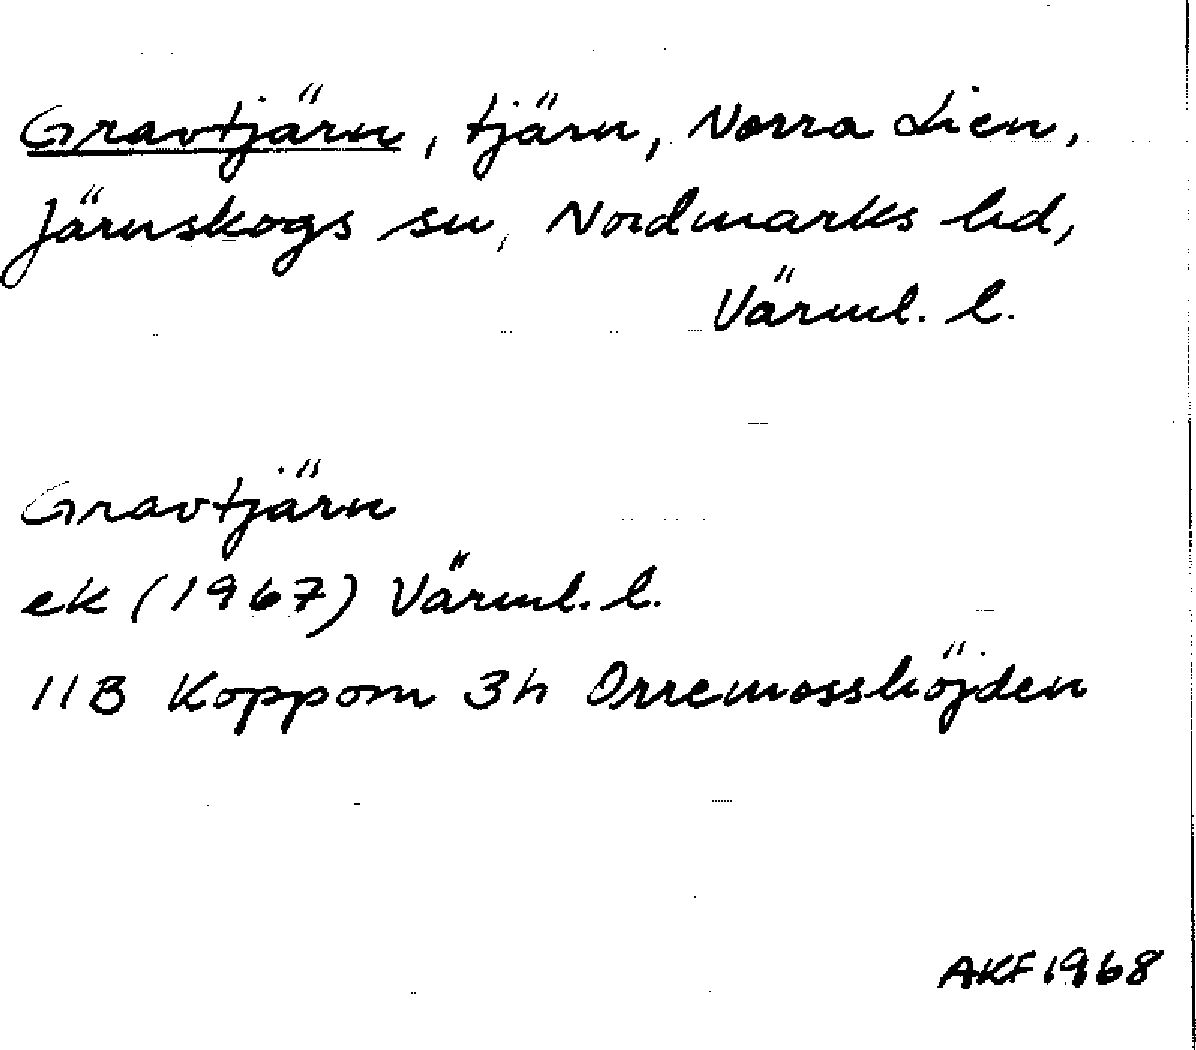 Gravtjärn, tjärn, Norra Lien,
Järnskogs sn, Nordmarks hd,
Värml. l.
Gravtjärn
ek (1967) Värml. l.
11B Koppom 3h Orremosshöjden
AKF 1968